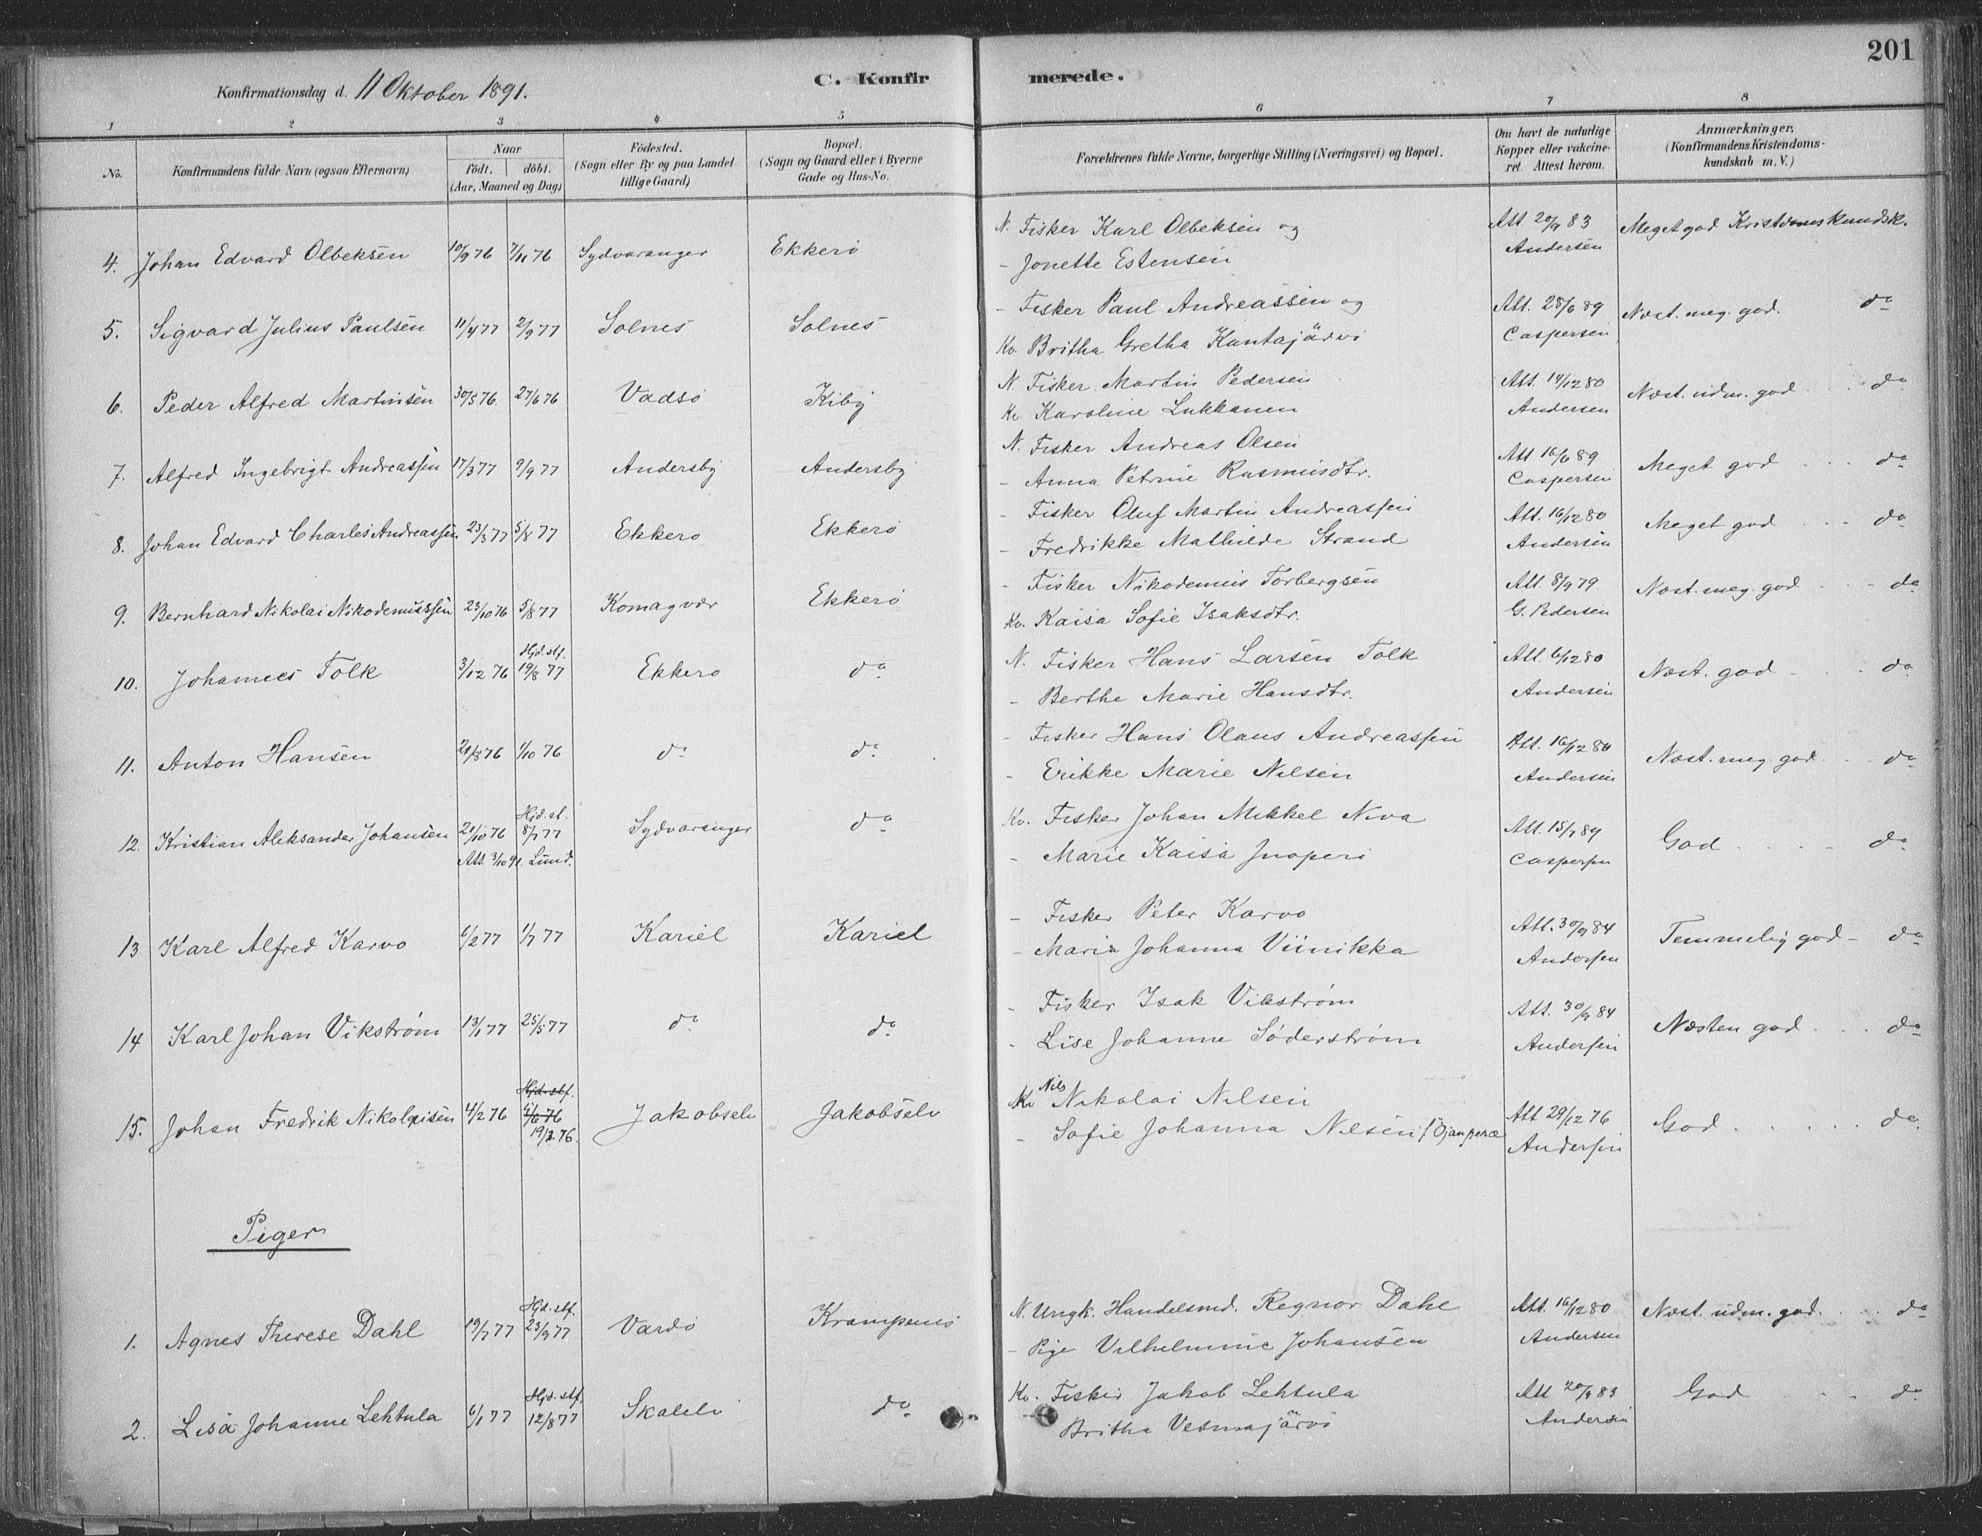 201
Konfirmationsdag d. 11 Oktober 1891. C. Konfirmerede.
1 2 3 4 5 6 7 8
No. Konfirmandens fulde Navn (ogsaa Efternavn) Naar födt. döbt. (Aar, Maaned og Dag) Födested. (Sogn eller By og paa Landet tillige Gaard) Bopæl. (Sogn og Gaard eller i Byerne Gade og Hus-No. Forældrenes fulde Navne, borgerlige Stilling (Næringsvei) og Bopæl. Om havt de naturlige Kopper eller vakcineret. Attest herom. Anmærkninger. (Konfirmandens Kristendomskundskab m. V.)
4. Johan Edvard Olbeksen 10/9 76 7/11 76 Sydvaranger Ekkerö N. Fisker Karl Olbeksen og Att. 20/9 83 Meget god Kristdomskundsk.
- Jonette Estensen Andersen
5. Sigvard Julius Paulsen 11/4 77 2/9 77 Solnes Solnes - Fisker Paul Andreassen og Att. 28/6 89 Næst. meg. god. do
Kv. Britha Gretha Kantajärvi Caspersen
6. Peder Alfred Martinsen 30/3 76. 27/6 76 Vadsö Kiby N. Fisker Martin Pedersen Att. 14/12 80 Næst. udm. god do
Kv. Karoline Lukkanen Andersen
7. Alfred Ingebrigt Andreassen 17/3 77 9/9 77 Andersby Andersby N. Fisker Andreas Olsen Att 16/6 89 Meget god do
- Anna Petrine Rasmusdtr. Caspersen
8. Johan Edvard Charles Andreassen 23/3 77 5/8 77 Ekkerö Ekkerö - Fisker Oluf Martin Andreassen Att. 16/12 80 Meget god do
- Fredrikke Mathilde Strand Andersen
9. Bernhard Nikolai Nikodemussen 23/10 76 5/8 77 Komagvær Ekkerö - Fisker Nikodemus Torbergsen Att. 8/9 79 Næst. meg. god do
Kv. Kaisa Sofie Isaksdtr. G. Pedersen
10. Johannes Folk 3/12 76 Hjd. stf. 19/8 77 Ekkerö do N. Fisker Hans Larsen Folk Att. 6/12 80 Næst. god do
- Berthe Marie Hansdtr. Andersen
11. Anton Hansen 21/8 76 1/10 76 do do - Fisker Hans Olaus Andreassen Att. 16/12 80 Næst. meg god do
- Erikke Marie Nilsen Andersen
12. Kristian Aleksander Johansen 21/10 76 Hjd. st. 8/7 77 Sydvaranger do Kv. Fisker Johan Mikkel Niva Att. 15/7 89 God do
Att. 3/10 91. Lund. - Marie Kaisa Juoperi Caspersen
13 Karl Alfred Karvo 6/2 77 1/7 77 Kariel Kariel - Fisker Peter Karvo Att. 30/9 84 Temmelig god - do
- Maria Johanna Viinikka Andersen
14 Karl Johan Vikström 13/1 77 25/5 77 do do - Fisker Isak Vikstrøm Att. 30/9 84 Næsten god do
- Lise Johanne Söderstrøm Andersen
15. Johan Fredrik Nikolaisen 4/2 76 Hjd. stf. 5/6 76 19/3 76. Jakobselv Jakobselv Kv Nils Nikolai Nilsen Att 29/12 76 God do
- Sofie Johanna Nilsen f. Ojanperæ Andersen
Piger
1. Agnes Therese Dahl 19/7 77 Hjd. stf. 23/9 77 Vardö Krampenes N. Ungk. Handelsmd. Regnor Dahl Att. 16/12 80 Næst. udm. god. do
- Pige Vilhelmine Johansen Andersen
2. Lisa Johanne Lehtula 6/1 77 Hjd. stf. 12/8 77 Skalelv do Kv. Fisker Jakob Lehtula Att 20/9 83 God do
Britha Vesmajärvi Andersen